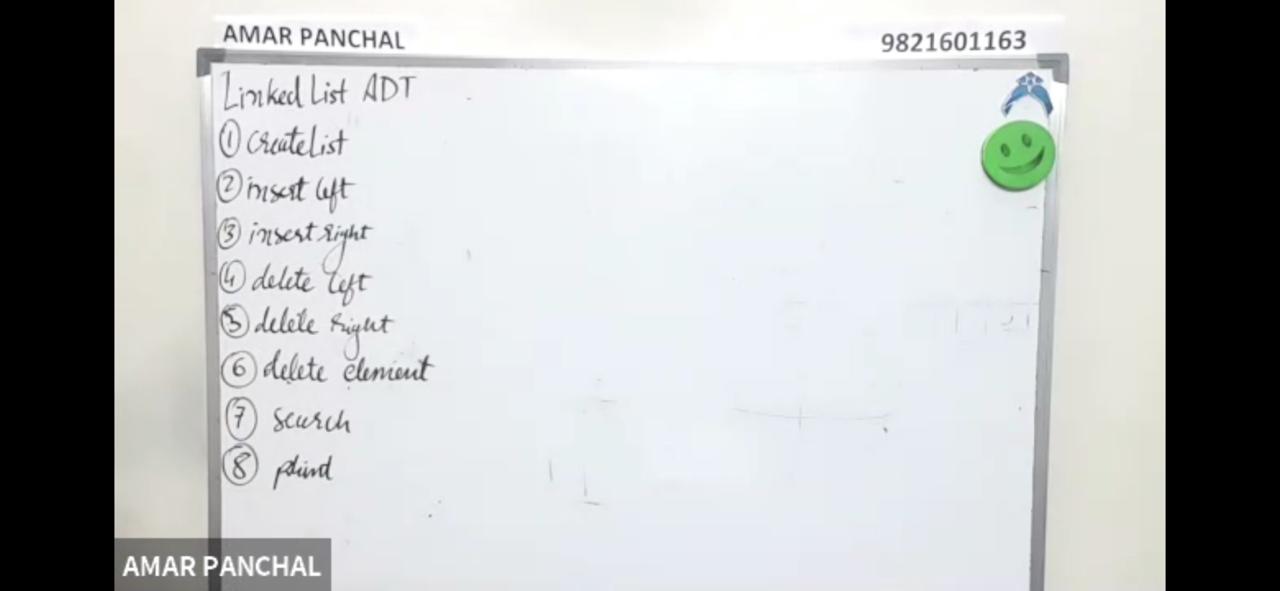 AMAR PANCHAL
9821601163
Linked List ADT
① createlist
② insert left
③ insert right
④ delete left
⑤ delete right
⑥ delete element
⑦ search
⑧
AMAR PANCHAL